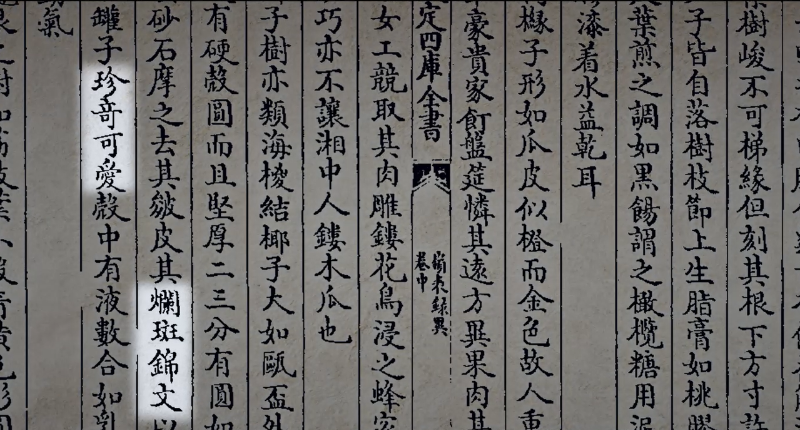 樹峻不可梯緣但刻其根下方寸許
子皆自落樹枝節上生脂膏如桃膠
葉煎之調如黑餳謂之橄欖糖用泥
漆着水益乾耳
櫞子形如瓜皮似橙而金色故人重
豪貴家飣盤筵憐其遠方異果肉甚
定四庫全書
嶺表録異
卷中
女工競取其肉雕鏤花鳥浸之蜂蜜
巧亦不讓湘中人鏤木瓜也
子樹亦類海椶結椰子大如甌盃外
有硬殼圓而且堅厚二三分有圓如
砂石摩之去其皴皮其爛斑錦文以
罐子珍竒可愛殼中有液數合如乳
氣